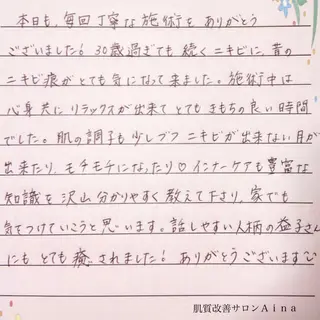 本日も、毎回丁寧な施術を ありがとう
ございました! 30歳過ぎても 続くニキビに、昔の
ニキビ痕がとても気になって来ました。施術中は
心身共に リラックスが出来て とても きもちの良い時間
でした。肌の調子も 少しづつ ニキビが 出来ない月が
出来たり、モチモチになったり♡ インナーケアも豊富な
知識を 沢山 分かりやすく 教えて下さり、家でも
気をつけていこうと思います。話しやすい人柄の益子さん
にも とても 癒されました! ありがとうございます
肌質改善サロンAina